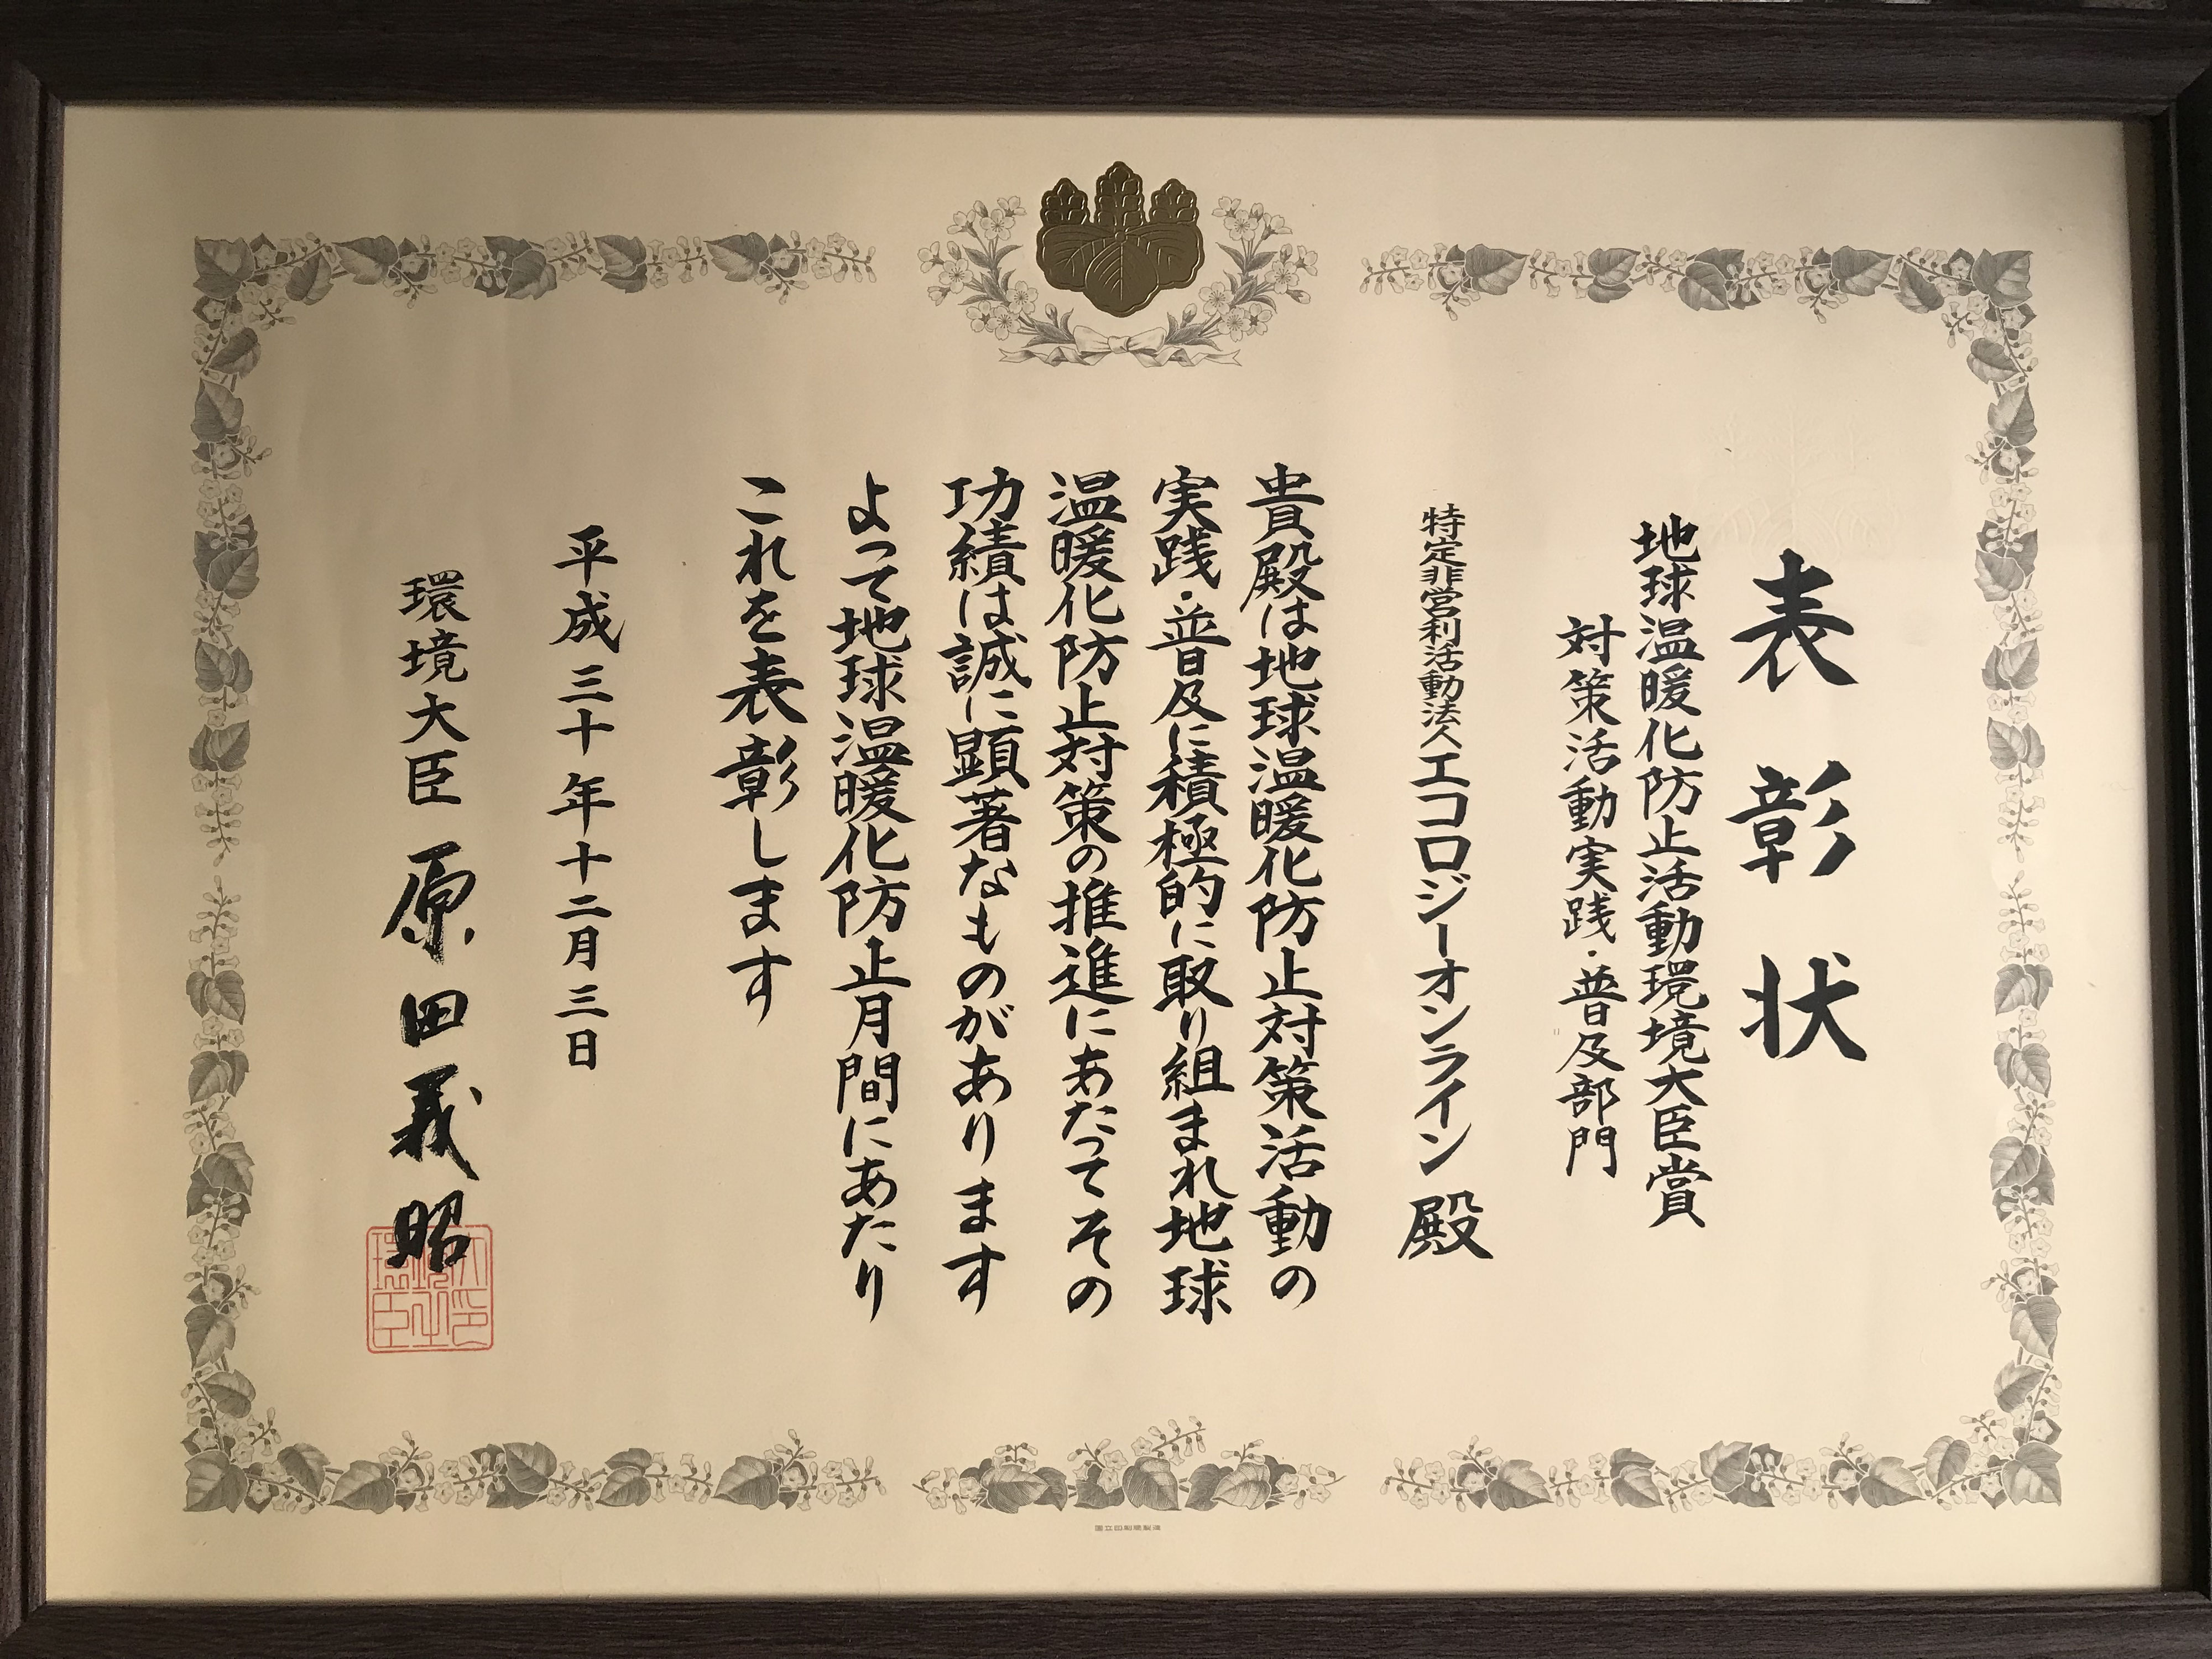 表彰状
地球温暖化防止活動環境大臣賞
対策活動実践・普及部門
特定非営利活動法人エコロジーオンライン殿
貴殿は地球温暖化防止対策活動の
実践・普及に積極的に取り組まれ地球
温暖化防止対策の推進にあたってその
功績は誠に顕著なものがあります
よって地球温暖化防止月間にあたり
これを表彰します
平成三十年十二月三日
環境大臣 原田義昭